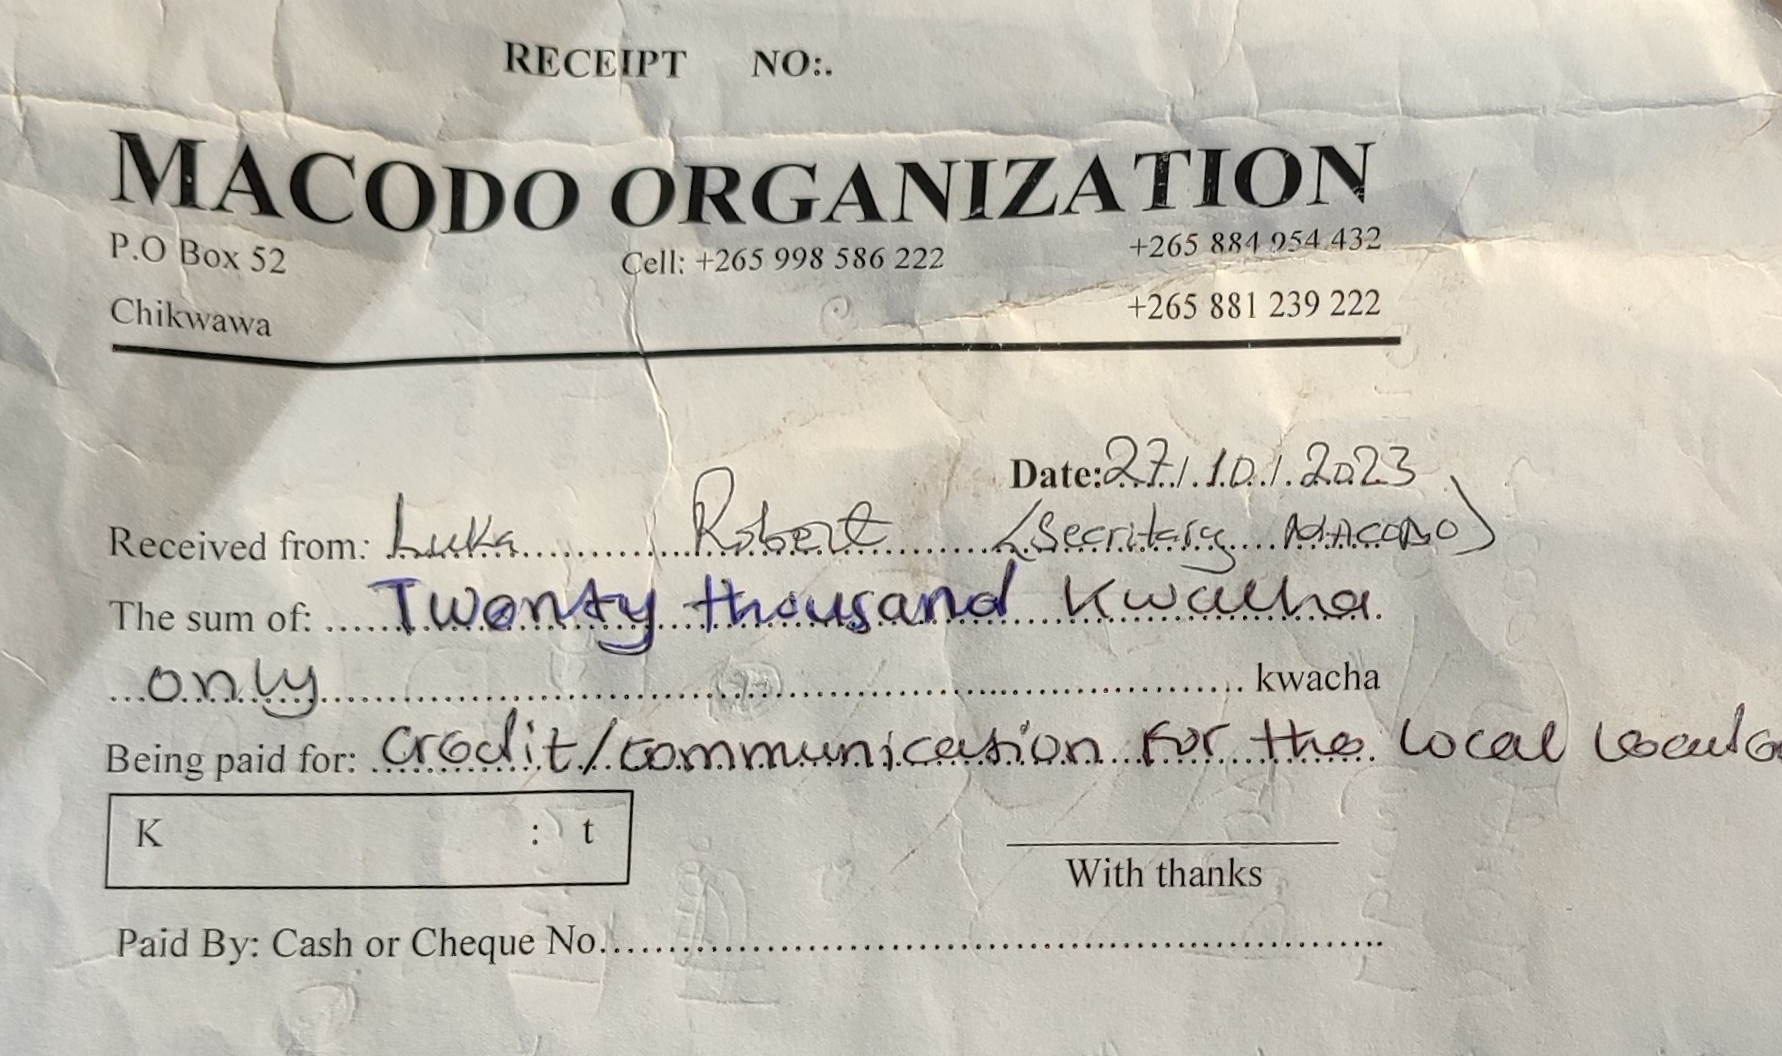 RECEIPT NO:.
MACODO ORGANIZATION
P.O Box 52 Cell: +265 998 586 222 +265 884 954 432
Chikwawa +265 881 239 222
Date: 27/10/2023
Received from: Luka Robert (Secritary MACODO)
The sum of: Twenty thousand Kwacha
only kwacha
Being paid for: credit/communication for the local
K : t
With thanks
Paid By: Cash or Cheque No.